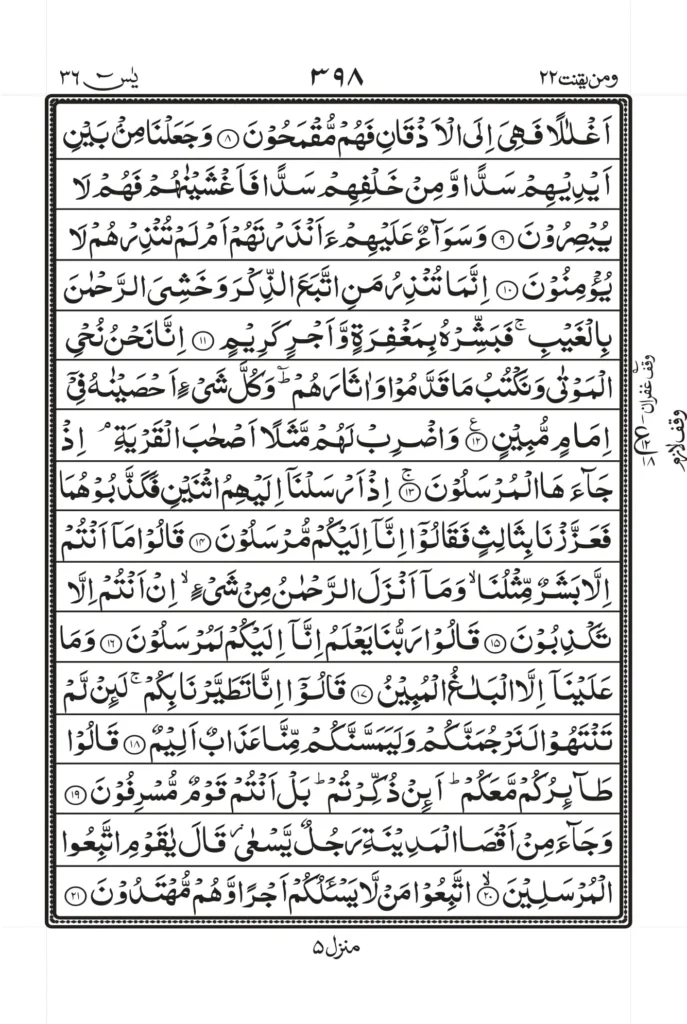 ومن یقنت ۲۲
۳۹۸
یٰسٓ ۳۶
اَغْلٰلًا فَهِیَ اِلَی الْاَذْقَانِ فَهُمْ مُّقْمَحُوْنَ ۸ وَجَعَلْنَا مِنْۢ بَیْنِ
اَیْدِیْهِمْ سَدًّا وَّمِنْ خَلْفِهِمْ سَدًّا فَاَغْشَیْنٰهُمْ فَهُمْ لَا
یُبْصِرُوْنَ ۹ وَسَوَآءٌ عَلَیْهِمْ ءَاَنْذَرْتَهُمْ اَمْ لَمْ تُنْذِرْهُمْ لَا
یُؤْمِنُوْنَ ۱۰ اِنَّمَا تُنْذِرُ مَنِ اتَّبَعَ الذِّكْرَ وَخَشِیَ الرَّحْمٰنَ
بِالْغَیْبِ ۚ فَبَشِّرْهُ بِمَغْفِرَةٍ وَّاَجْرٍ كَرِیْمٍ ۱۱ اِنَّا نَحْنُ نُحْیِ
الْمَوْتٰی وَنَكْتُبُ مَا قَدَّمُوْا وَاٰثَارَهُمْ ؕ وَكُلَّ شَیْءٍ اَحْصَیْنٰهُ فِیْۤ
اِمَامٍ مُّبِیْنٍ ۱۲ وَاضْرِبْ لَهُمْ مَّثَلًا اَصْحٰبَ الْقَرْیَةِ ۘ اِذْ
جَآءَهَا الْمُرْسَلُوْنَ ۱۳ اِذْ اَرْسَلْنَاۤ اِلَیْهِمُ اثْنَیْنِ فَكَذَّبُوْهُمَا
فَعَزَّزْنَا بِثَالِثٍ فَقَالُوْۤا اِنَّاۤ اِلَیْكُمْ مُّرْسَلُوْنَ ۱۴ قَالُوْا مَاۤ اَنْتُمْ
اِلَّا بَشَرٌ مِّثْلُنَا ۙ وَمَاۤ اَنْزَلَ الرَّحْمٰنُ مِنْ شَیْءٍ ۙ اِنْ اَنْتُمْ اِلَّا
تَكْذِبُوْنَ ۱۵ قَالُوْا رَبُّنَا یَعْلَمُ اِنَّاۤ اِلَیْكُمْ لَمُرْسَلُوْنَ ۱۶ وَمَا
عَلَیْنَاۤ اِلَّا الْبَلٰغُ الْمُبِیْنُ ۱۷ قَالُوْۤا اِنَّا تَطَیَّرْنَا بِكُمْ ۚ لَئِنْ لَّمْ
تَنْتَهُوْا لَنَرْجُمَنَّكُمْ وَلَیَمَسَّنَّكُمْ مِّنَّا عَذَابٌ اَلِیْمٌ ۱۸ قَالُوْا
طَآئِرُكُمْ مَّعَكُمْ ؕ اَئِنْ ذُكِّرْتُمْ ؕ بَلْ اَنْتُمْ قَوْمٌ مُّسْرِفُوْنَ ۱۹
وَجَآءَ مِنْ اَقْصَا الْمَدِیْنَةِ رَجُلٌ یَّسْعٰی ؗ قَالَ یٰقَوْمِ اتَّبِعُوا
الْمُرْسَلِیْنَ ۲۰ اتَّبِعُوْا مَنْ لَّا یَسْئَلُكُمْ اَجْرًا وَّهُمْ مُّهْتَدُوْنَ ۲۱
وقف غفران
وقف لازم
منزل ۵